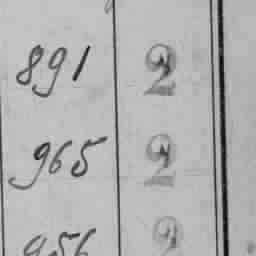 891 2
965 2
956 2